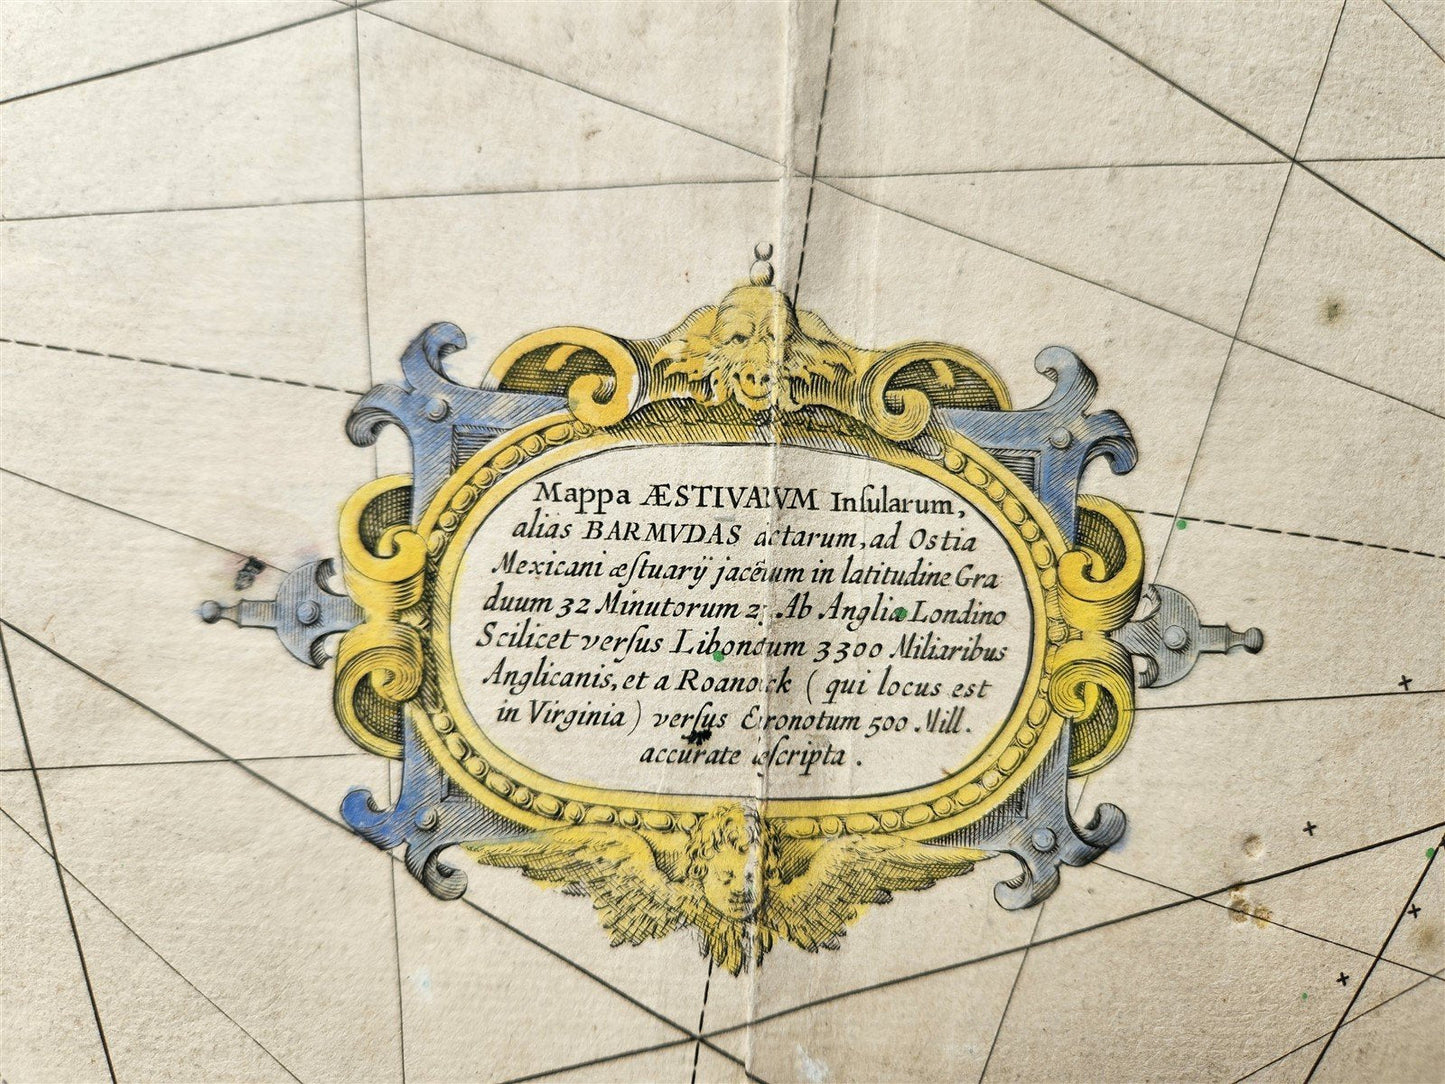 Mappa ÆSTIVARVM Inſularum,
alias BARMVDAS dictarum, ad Ostia
Mexicani æſtuarÿ jacētium in latitudine Gra
duum 32 Minutorum 25. Ab Anglia Londino
Scilicet verſus Libonotum 3300 Miliaribus
Anglicanis, et a Roanoack ( qui locus est
in Virginia ) verſus Euronotum 500 Mill.
accurate deſcripta .